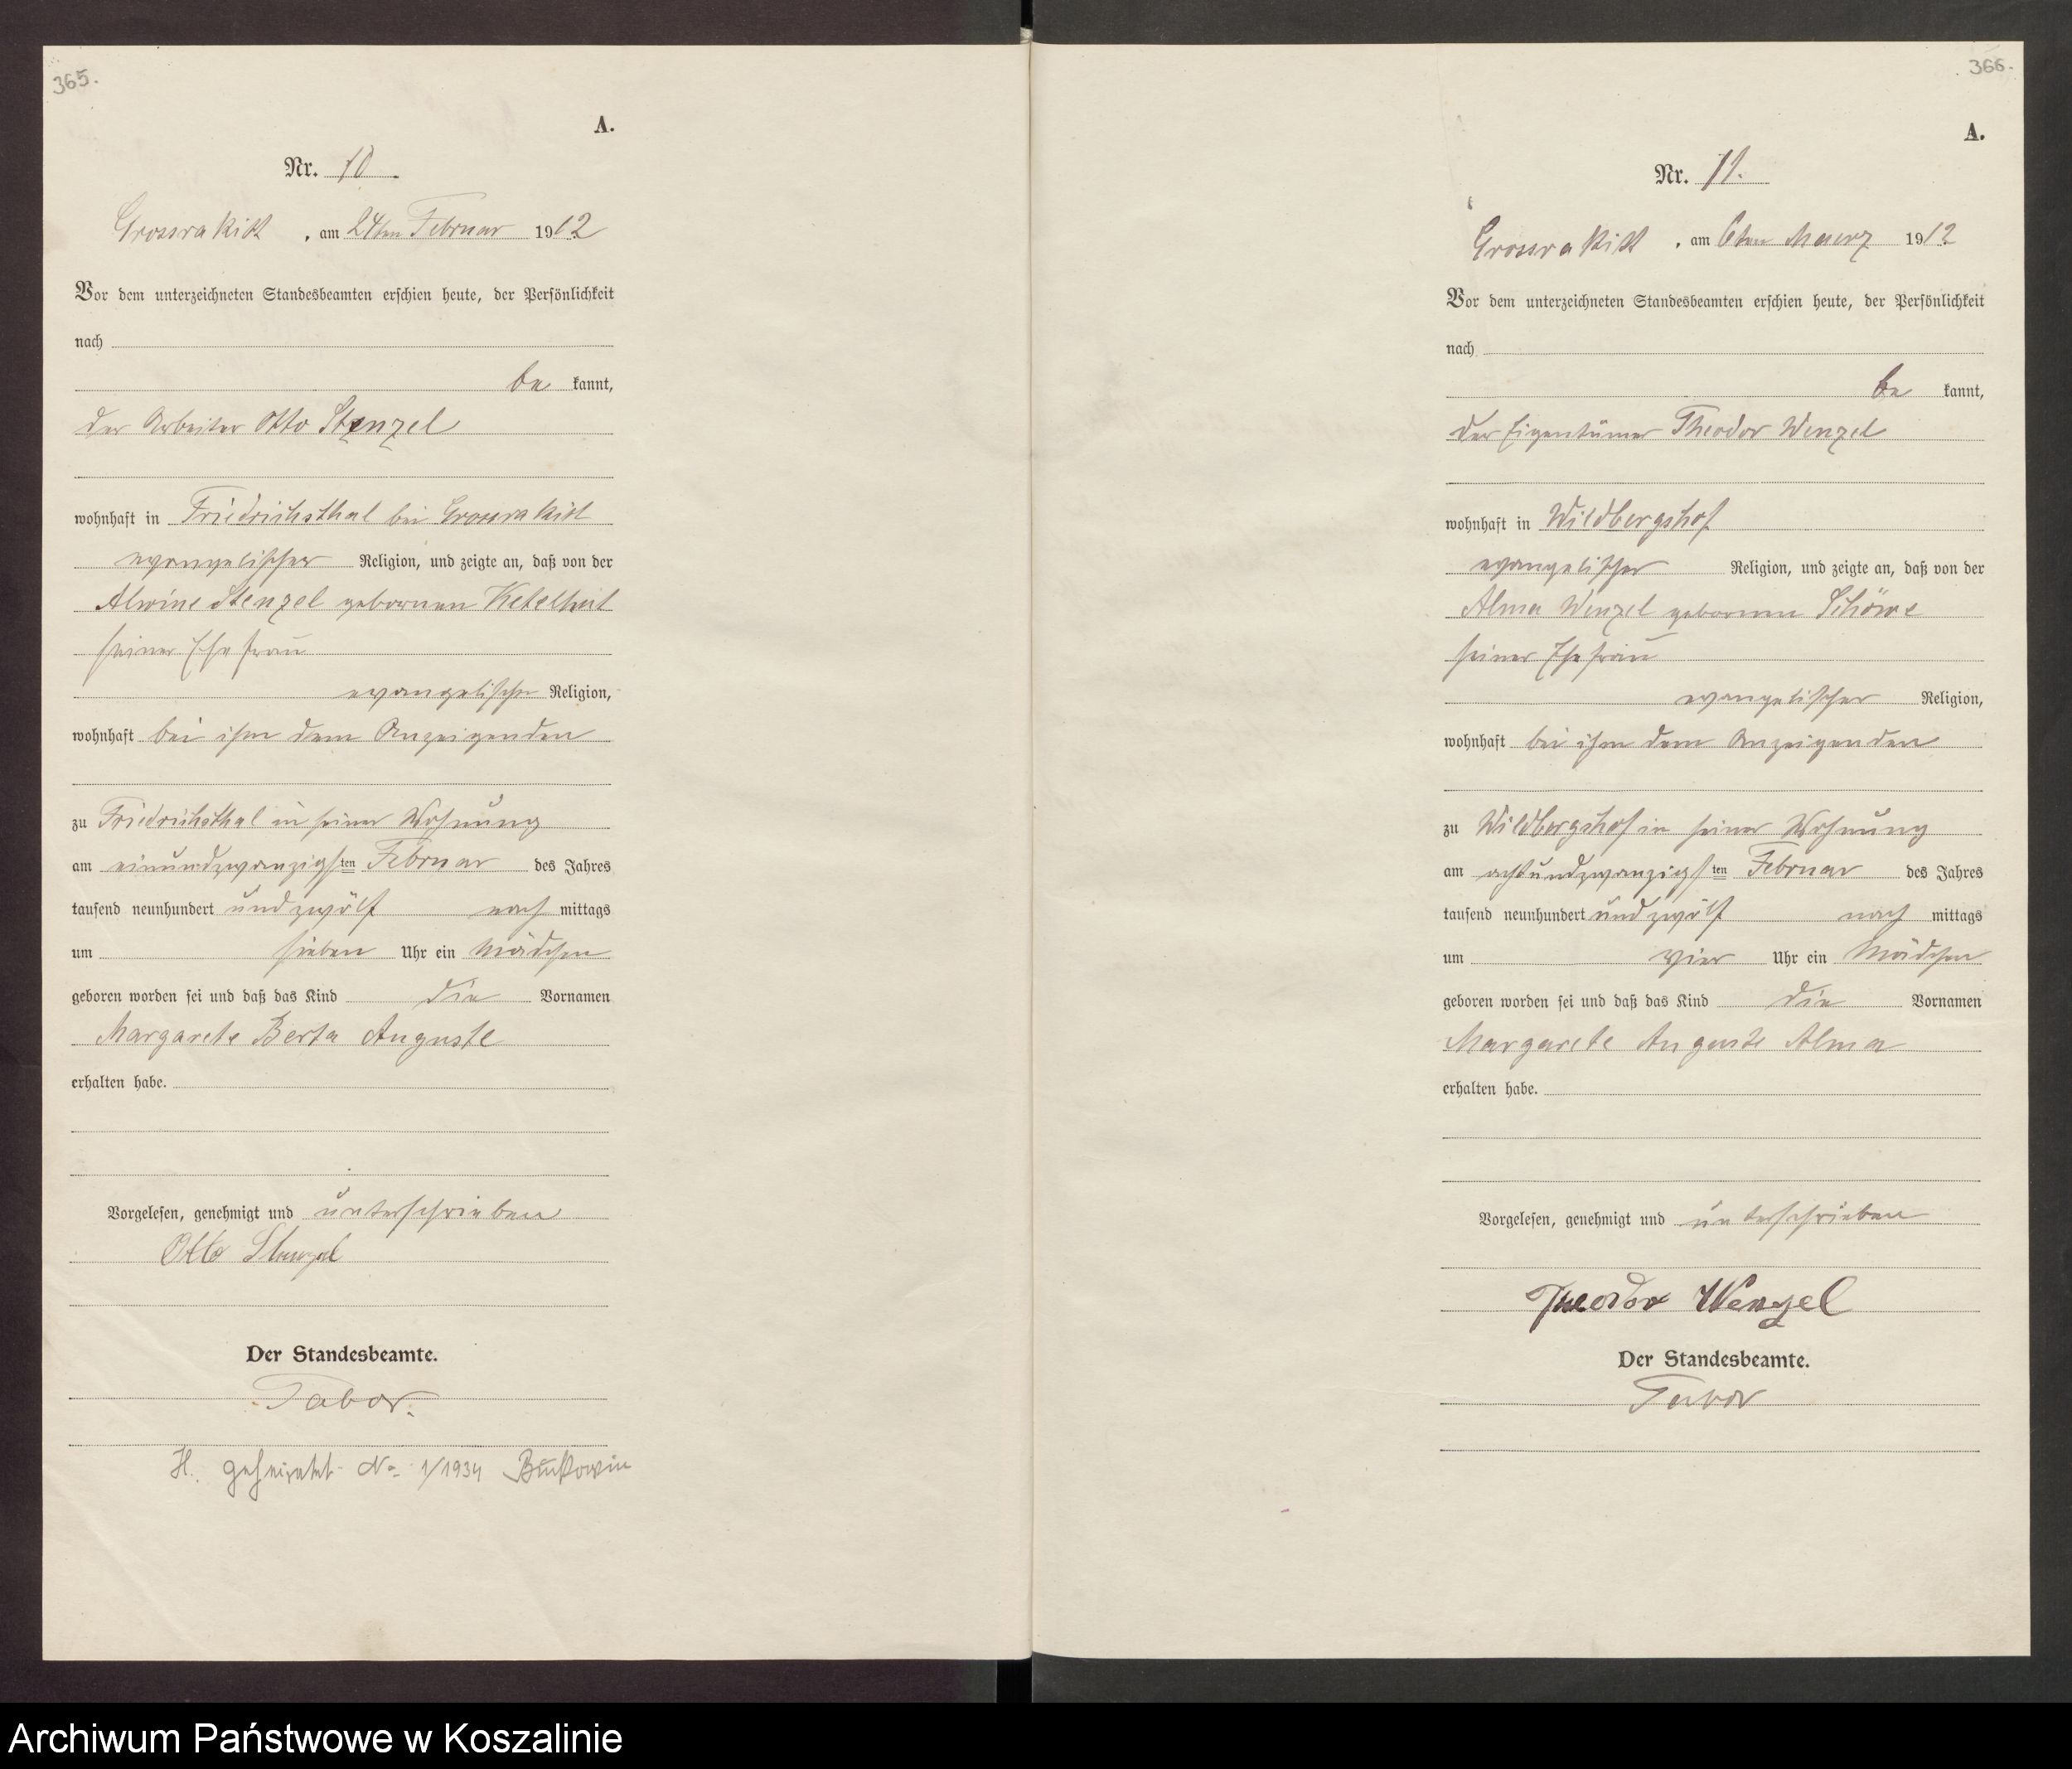 365.
A.
Nr. 10.
Grossrakitt, am 24ten Februar 1912
Vor dem unterzeichneten Standesbeamten erschien heute, der Persönlichkeit
nach
be kannt,
der Arbeiter Otto Stenzel
wohnhaft in Friedrichsthal bei Grossrakitt
evangelischer Religion, und zeigte an, daß von der
Alwine Stenzel gebornen
seiner Ehefrau
evangelischer Religion,
wohnhaft bei ihm dem Anzeigenden
zu Friedrichsthal in seiner Wohnung
am einundzwanzigsten Februar des Jahres
tausend neunhundert und zwölf nach mittags
um sieben Uhr ein Mädchen
geboren worden sei und daß das Kind die Vornamen
Margarete Berta Auguste
erhalten habe.
Vorgelesen, genehmigt und unterschrieben
Otto Stenzel
Der Standesbeamte.
Tabor.
H. geheiratet No 1/1934 Buckowin
366.
A.
Nr. 11.
Grossrakitt, am 6ten Maerz 1912
Vor dem unterzeichneten Standesbeamten erschien heute, der Persönlichkeit
nach
be kannt,
der Eigentümer Theodor Wenzel
wohnhaft in Wildbergshof
evangelischer Religion, und zeigte an, daß von der
Alma Wenzel gebornen Schöwe
seiner Ehefrau
evangelischer Religion,
wohnhaft bei ihm dem Anzeigenden
zu Wildbergshof in seiner Wohnung
am achtundzwanzigsten Februar des Jahres
tausend neunhundert und zwölf nach mittags
um vier Uhr ein Mädchen
geboren worden sei und daß das Kind die Vornamen
Margarete Auguste Alma
erhalten habe.
Vorgelesen, genehmigt und unterschrieben
Theodor Wenzel
Der Standesbeamte.
Tabor
Archiwum Państwowe w Koszalinie